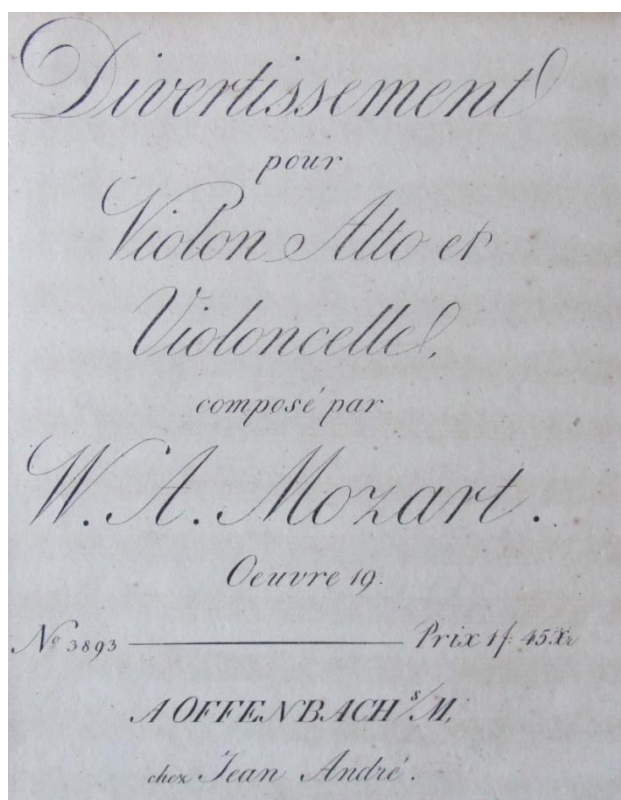 Divertissement
pour
Violon Alto et
Violoncelle,
composé par
W. A. Mozart.
Oeuvre 19.
No 3893 Prix 1f 45Xr
A OFFENBACH s/M,
chez Jean André.